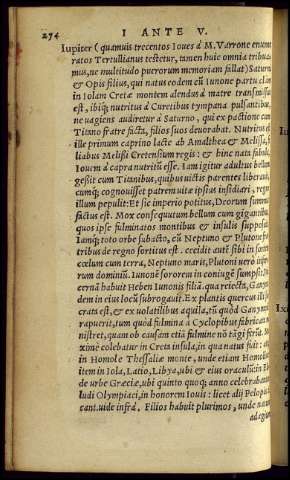 274 I ANTE V.
Iupiter (quamuis trecentos Ioues à M. Varrone enume
ratos Tertullianus testetur, tamen huic omnia tribua
mus, ne multitudo puerorum memoriam fallat) Saturni
& Opis filius, qui natus eodem cũ Iunone partu clam
in Iolam Cretæ montem alendus à matre transmissus
est, ibiq; nutritus à Curetibus tympana pulsantibus,
ne uagiens audiretur à Saturno, qui ex pactione cum
Titano fratre facta, filios suos deuorabat. Nutritus est
ille primum caprino lacte ab Amalthea & Melissa, fi
liabus Melissi Cretensium regis: & hinc nata fabula,
Iouem à capra nutritũ esse. Iam igitur adultus bellum
gessit cum Titanibus, quibus uictis parentes liberauit,
cumq; cognouisset patrem uitæ ipsius insidiari, regno
illum pepulit: Et sic imperio potitus, Deorum summus
factus est. Mox consequutum bellum cum gigantibus
quos ipse fulminatos montibus & insulis supposuit.
Iamq; toto orbe subacto, cũ Neptuno & Plutone fra
tribus de regno sortitus est. cecidit autẽ sibi in sortem
cœlum cum terra, Neptuno maris, Plutoni uero infe
rum dominiũ. Iunonẽ sororem in coniugẽ sumpsit:
cernã habuit Heben Iunonis filiã. qua reiecta, Ganyme
dem in eius locũ subrogauit. Ex plantis quercus illi sa
crata est, & ex uolatilibus aquila, tũ quòd Ganymedẽ
rapuerit, tum quòd fulmina à Cyclopibus fabricata mi
nistret, quam ob causam etiã fulmine nõ tãgi ferũt. Ma
ximè colebatur in Creta insula, in qua natus fuit: at
in Homole Thessaliæ monte, unde etiam Homolius
item in Iola, Latio, Libya, ubi & eius oraculũ: in Elide
de urbe Græciæ, ubi quinto quoq; anno celebrabantur
ludi Olympiaci, in honorem Iouis: licet alij Pelopi di
cant. uide infrà. Filios habuit plurimos, unde natus
adagium